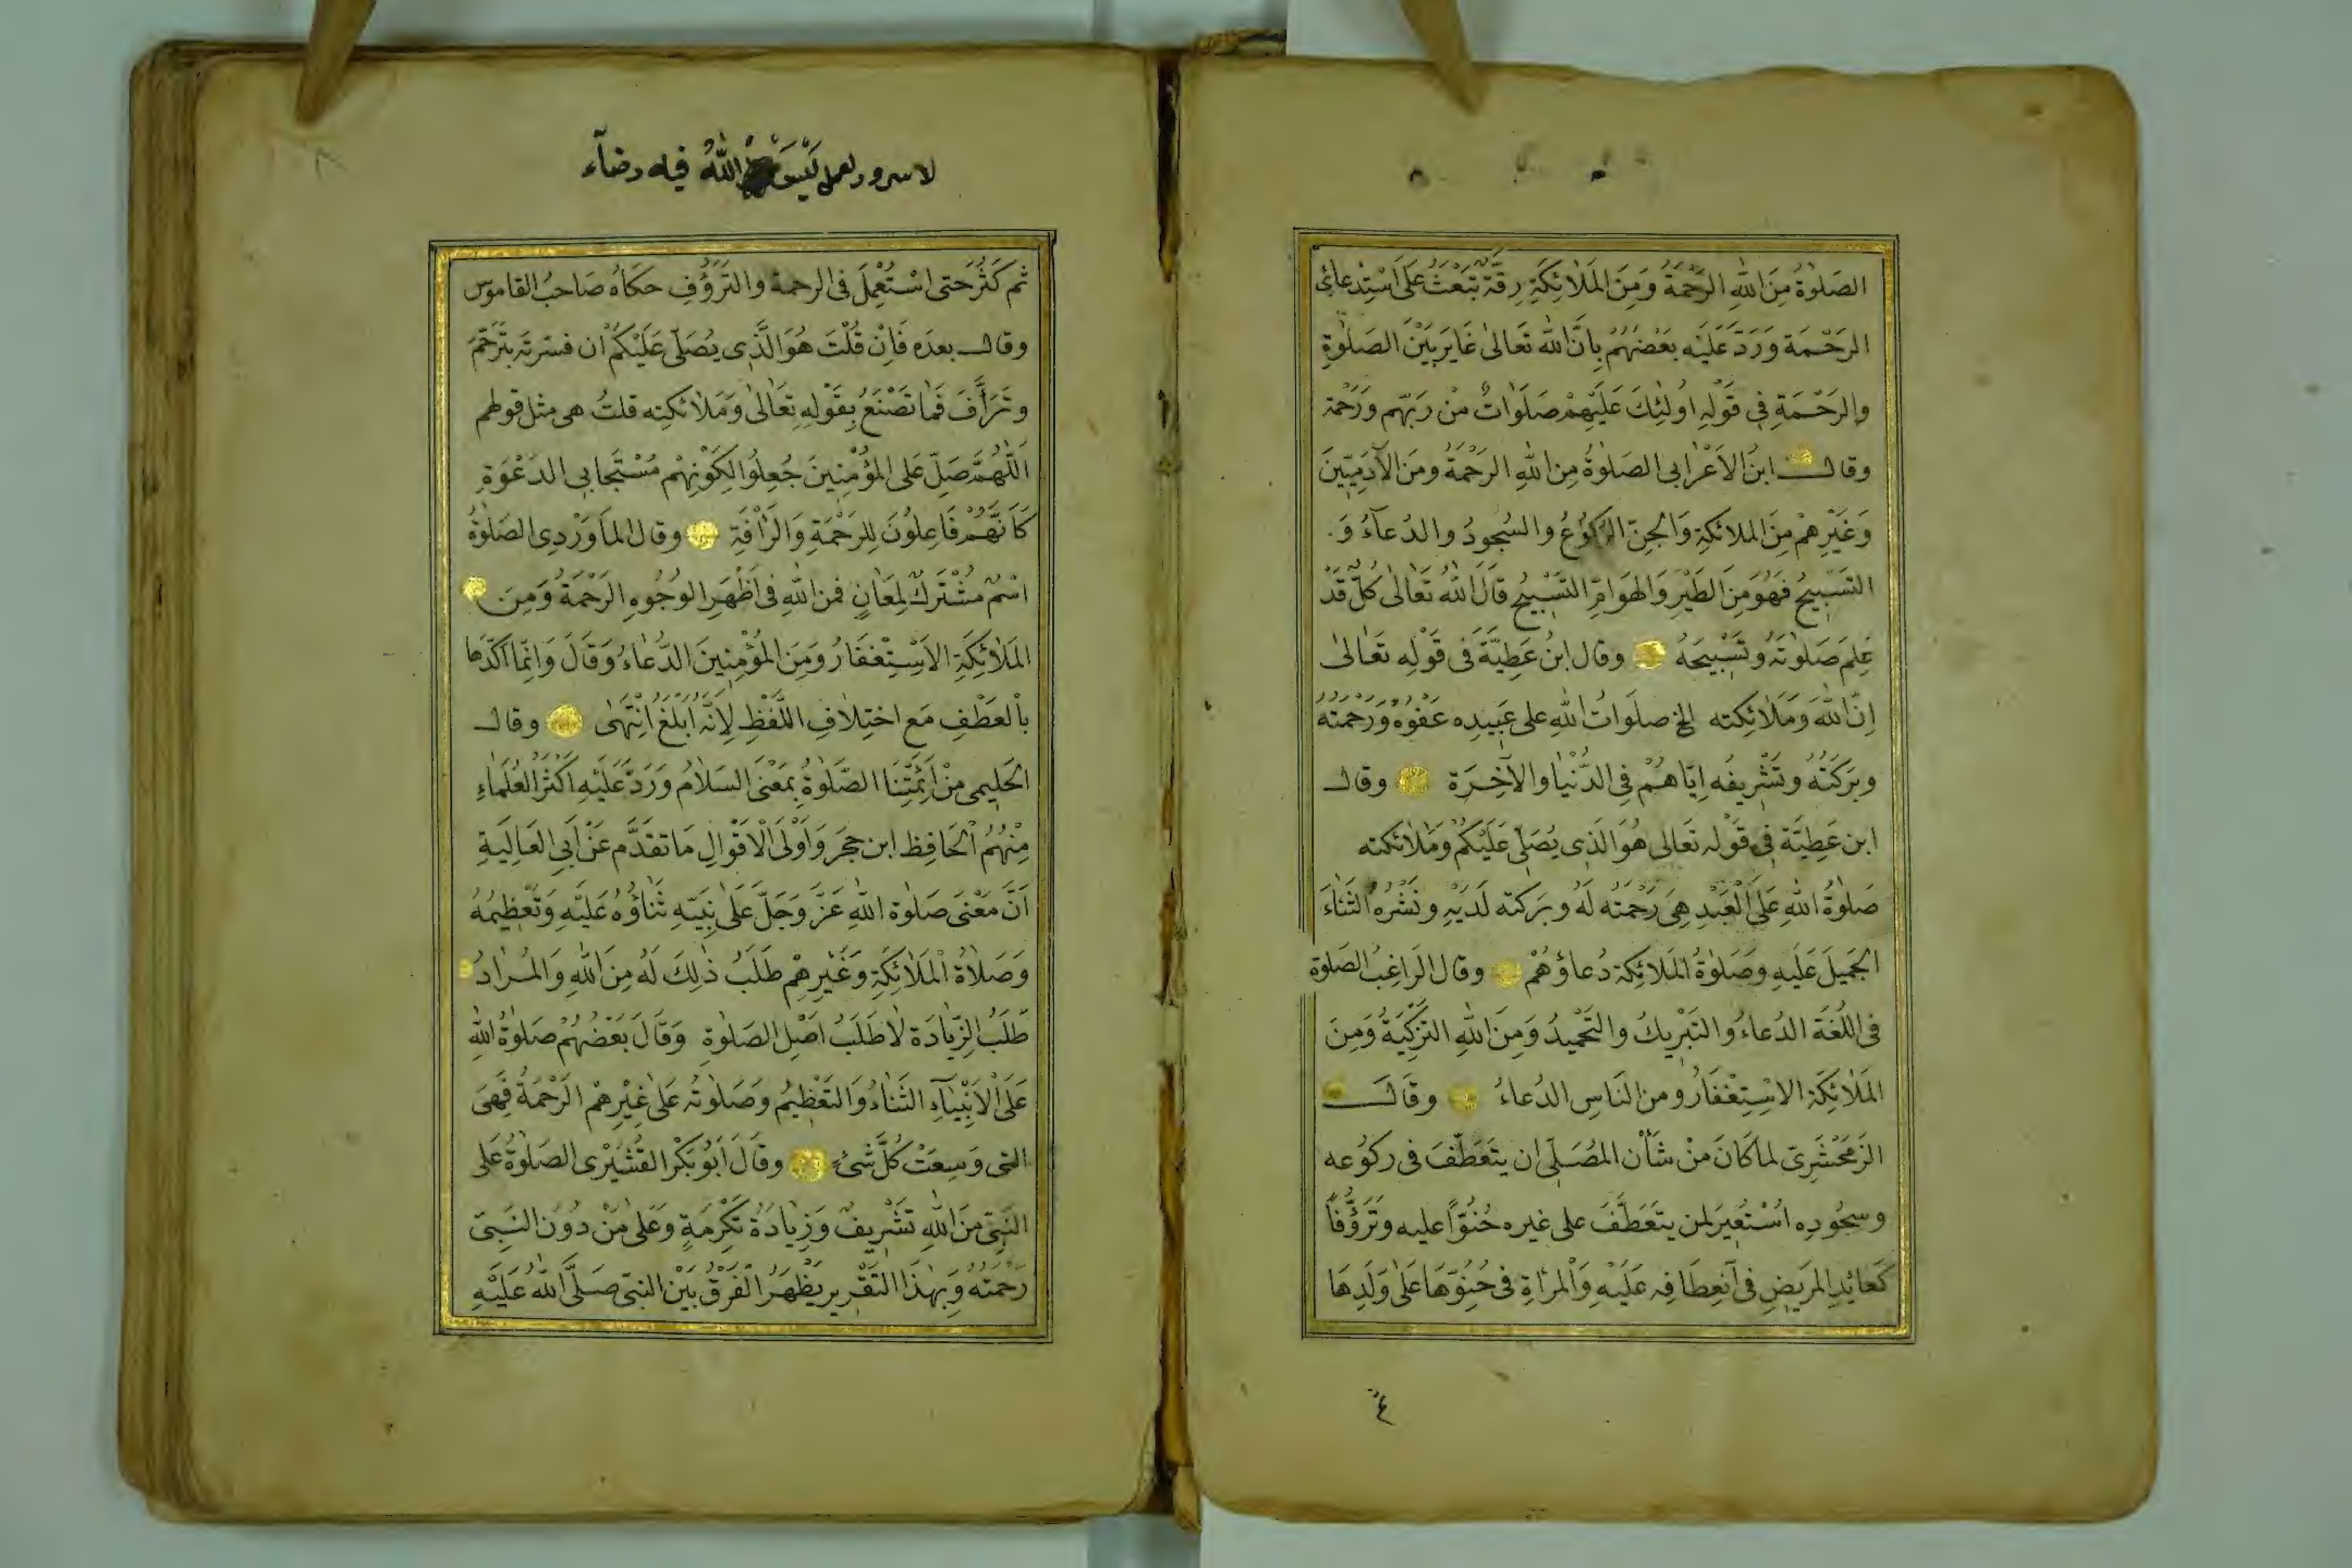 الصَلٰوةُ مِنَ اللّٰهِ الرَحْمَةُ وَمِنَ المَلَائِكَةِ رِقَّةٌ تَبْعَثُ عَلَى اسْتِدْعَائِ
الرَحْمَة وَرَدَّ عَلَيْهِ بَعْضُهُمْ بِاَنَّ اللّٰه تَعَالىٰ غَايَرَ بَيْنَ الصَلٰوةِ
وَالرَحْمَةِ فِي قَوْلِهِ اُولٰئِكَ عَلَيْهِمْ صَلَوَاتٌ مِنْ رَبِّهِم وَرَحْمَة
وقال ابنُ الاَعْرابى الصَلوٰةُ مِنَ اللّٰهِ الرَحْمَةُ ومَنَ الآدَمِيّينَ
وَغَيْرِهِمْ مِنَ الملائكَةِ وَالجِنّ الرُكُوعُ والسُجودُ والدُعَآءُ وَ
التَسْبِيحُ فَهُوَ مِنَ الطَيْرِ وَالهَوَامِّ التَسْبِيحُ قَالَ اللّٰهُ تَعَالىٰ كُلٌّ قَدْ
عَلِمَ صَلٰوتَهُ وتَسْبِيحَهُ وقال ابنُ عَطِيَّةَ فى قَوْلِهِ تَعَالىٰ
اِنَّ اللّٰهَ وَمَلَائِكته الخ صلَوَاتُ اللّٰهِ على عَبِيدِه عَفْوُهُ وَرَحْمَتُهُ
وبَرَكَتُهُ وتَشْرِيفُه اِيَّاهُمْ فِى الدُنْيَا والاٰخِرَة وقال
ابن عَطِيَّة فِى قَوْلِه تَعَالى هُوَ الَّذِى يُصَلّى عَلَيْكُمْ وَمَلَائكته
صَلٰوةُ اللّٰهِ عَلَى الْعَبْدِ هِىَ رَحْمَتُه لَهُ وبَرَكَته لَدَيْهِ ونَشْرُهُ الثَنَاءَ
الجَمِيلَ عَلَيهِ وصَلوٰةُ المَلَائِكَة دُعاؤُهُمْ وقال الرَاغِبُ الصَلٰوة
فى اللُغَة الدُعَاءُ والتَبْرِيكُ والتَحْمِيدُ وَمِنَ اللّٰهِ التَزْكِيَةُ وَمِنَ
المَلَائِكَة الاسْتِغْفَارُ ومن النَاسِ الدُعَاءُ وقَالَ
الزَمَخْشَرِىّ لما كَانَ مِنْ شَأْن المُصَلّى ان يتَعَطَّفَ فى ركوُعه
وسجُودِه اسْتُعِيرَ لمن يتَعَطَّفَ على غيره حُنُوّاً عليه وتَرَؤُّفاً
كَعائِدِ المَرِيضِ فى اَنْعِطَافِه عَلَيْهِ وَالْمَرأةِ فى حُنُوّهَا عَلىٰ وَلَدِهَا
٤
لا سرور لعمل لَيْسَ اللّٰهُ فيه رضآء
ثم كَثُرَ حَتى اسْتُعْمِلَ فى الرحمة والتَرَؤُّفِ حكَاهُ صَاحبُ القاموس
وقال بعدَه فَاِنْ قُلْتَ هُوَ الَّذِى يُصَلّى عَلَيْكُمْ ان فسّرته بتَرَحَّمَ
وتَرَأَّفَ فَما تَصْنَعُ بِقَوْلِهِ تَعَالىٰ وَمَلائكته قلتُ هى مثل قولهم
اَللّٰهُمَّ صَلِّ عَلى المُؤْمِنِينَ جُعِلُوا لِكَوْنِهِمْ مُسْتَجَابِى الدَعْوَةِ
كَاَنَّهُمْ فَاعِلُونَ لِلرَحْمَةِ وَالرَأفَةِ وقال المَاوَرْدِى الصَلوٰةُ
اسْمٌ مُشْتَرَكٌ لِمَعَانٍ فمن اللّٰهِ فى اَظْهَرِ الوُجُوهِ الرَحْمَةُ وَمِنَ
المَلَائِكَةِ الاَسْتِغْفَارُ وَمِنَ المُؤْمِنِينَ الدُّعَاءُ وَقَالَ وَانّمَا اَكّدَها
بالعَطْفِ مَع اختِلَافِ اللَّفْظِ لِاَنَّهُ اَبْلَغُ انْتَهىٰ وقال
الحَلِيمى مِنْ اَئِمَّتِنَا الصَّلٰوةُ بِمَعْنَى السَلَامُ وَرَدَّ عَلَيْهِ اَكْثَرُ العُلَمَاءِ
مِنْهُمُ الْحَافِظ ابن حجَر وَاَوْلَى الْاَقْوَالِ مَا تقدَّم عَنْ اَبِى العَالِيَةِ
اَنَّ مَعْنىَ صَلٰوة اللّٰهِ عَزَّ وَجَلَّ عَلىٰ نَبِيّهِ ثَنَاؤُهُ عَلَيْهِ وَتَعْظِيمُهُ
وَصَلَاةُ الْمَلَائِكَةِ وَغَيْرِهِمْ طَلَبُ ذٰلِكَ لَهُ مِنَ اللّٰهِ وَالمُرَادُ
طَلَبُ الزّيَادَة لَا طَلَبُ اصْلِ الصَلٰوةِ وَقَالَ بَعْضُهُمْ صَلوٰةُ اللّٰهِ
عَلَى الْاَنْبِيَآءِ الثَنَاءُ وَالتَعْظِيمُ وصَلٰوتُه عَلىٰ غَيْرِهِم الرَحْمَةُ فَهِىَ
التى وَسِعَتْ كُلَّ شَئ وقَالَ اَبُو بَكْر القُشَيْرى الصَلٰوةُ عَلَى
النَبِىّ مِنَ اللّٰهِ تَشْرِيفٌ وَزِيَادَةُ تَكْرِمَةٍ وَعَلىٰ مَنْ دوُنَ النَبِىّ
رَحْمَتُه وَبِهٰذَا التَقْرِير يَظْهَرُ الْفَرْقُ بَيْنَ النبىّ صَلَّى اللّٰهُ عَلَيْهِ